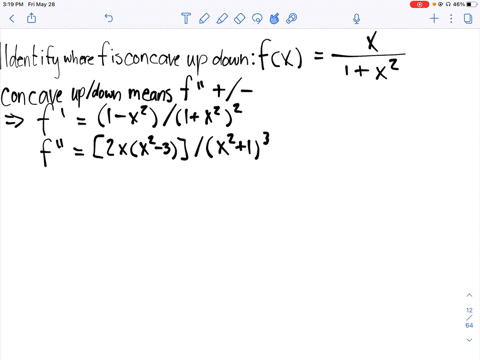 3:19 PM Fri May 28
46%
Identify where f is concave up down: f(x) = x / (1 + x²)
concave up/down means f" +/-
⇒ f' = (1-x²)/(1+x²)²
f" = [2x(x²-3)]/(x²+1)³
12
/
64